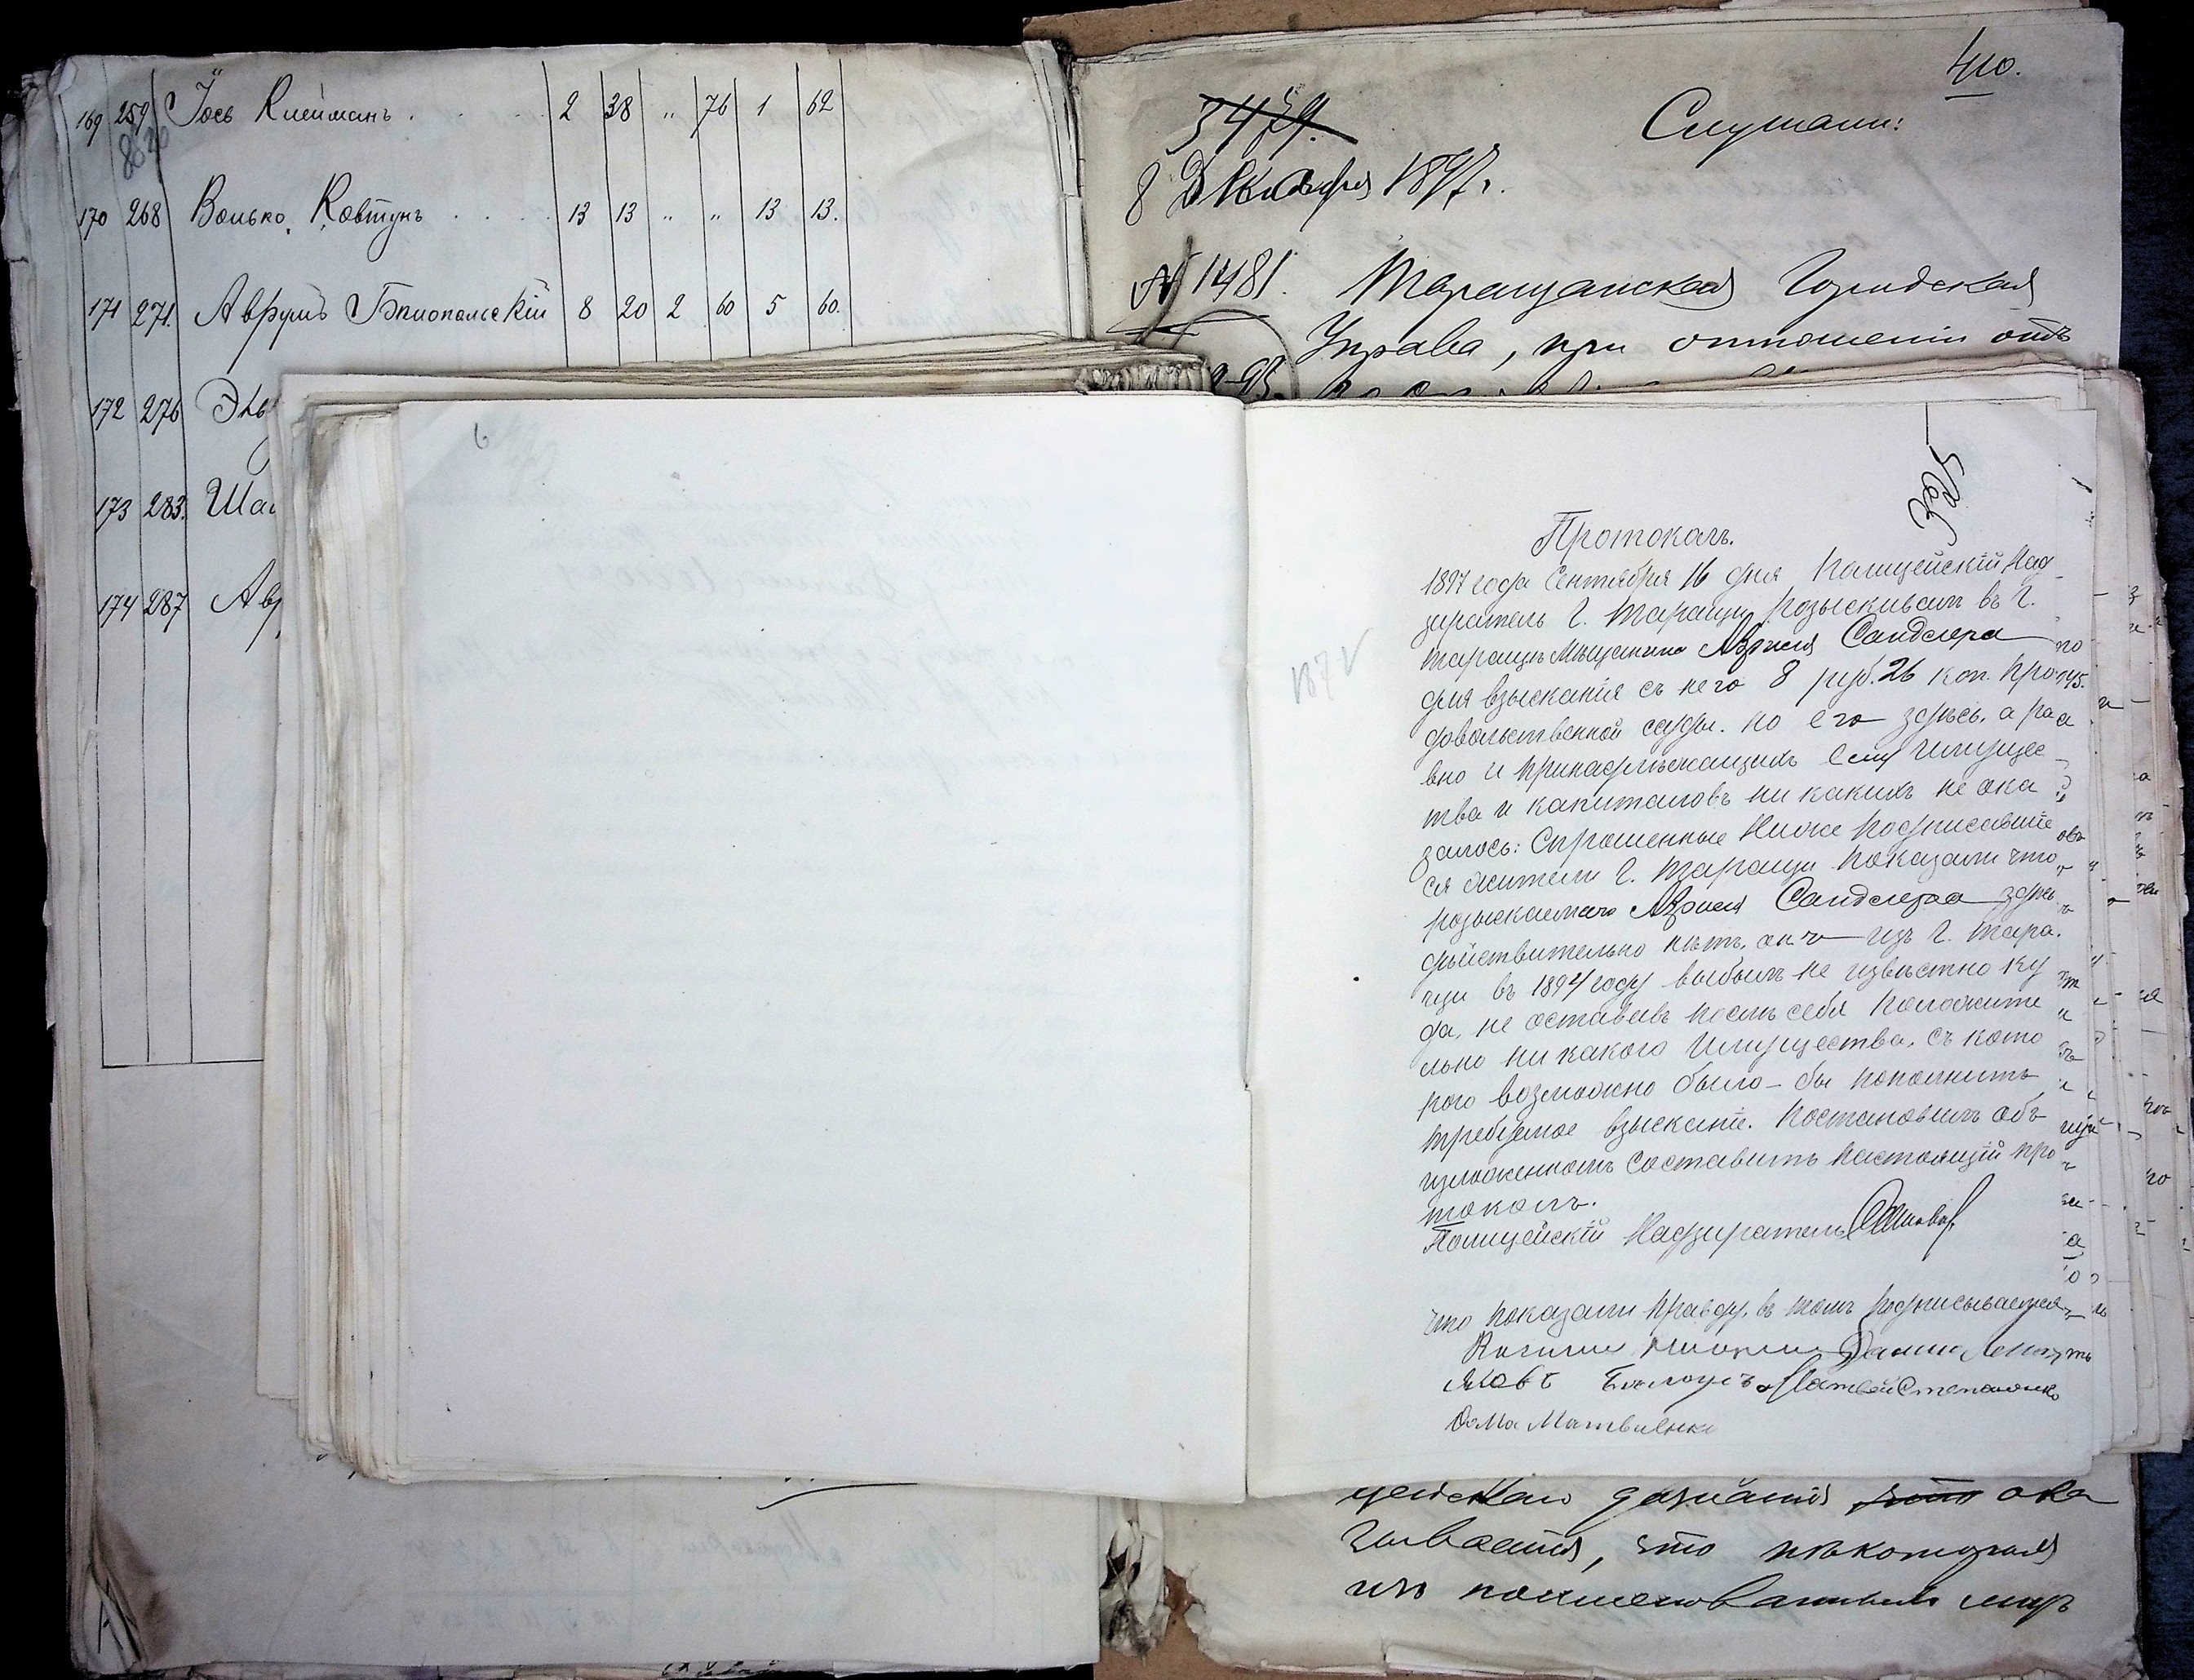 169 259 Іось Клейманъ 2 38 „ 76 1 62
170 268 Волько Ковтунъ 13 13 „ „ 13 13.
171 271. Аврумъ Бялопольскій 8 20 2 60 5 60.
172 276
173 283.
174 287
410.
3479.
Слушали:
8 Декабря 1897 г.
№ 1481. Таращанская Городская
Управа, при отношеніи отъ
Протоколъ.
1897 года Сентября 16 дня Полицейскій Над
зиратель г. Таращи розыскивалъ въ г.
Таращѣ Мѣщанина Азріеля Сандлера
для взысканія съ него 8 руб. 26 коп. Про
довольственной ссуды. но его здѣсь, а ра
вно и принадлѣжащихъ ему имущес
тва и капиталовъ ни какихъ не ока
залось: Спрошенные Ниже Подписавшіе
ся жители г. Таращи показали что
розыскиемаго Азріеля Сандлера здѣс
дѣйствительно нѣтъ, онъ изъ г. Тара.
щи въ 1894 году выбылъ не извѣстно ку
да, не оставивъ послѣ себя положите
льно ни какого Имущества, съ кото
рого возможно было-бы пополнить
требуемое взысканіе. Постановилъ объ
изложенномъ Составить настоящій про
токолъ.
Полицейскій Надзиратель
Что показали правду, въ томъ подписываемся
Яковъ Матвей Степаненко
Фома Матвиенко
дознанія ока
зывается, что нѣкоторыя
изъ поименованныхъ